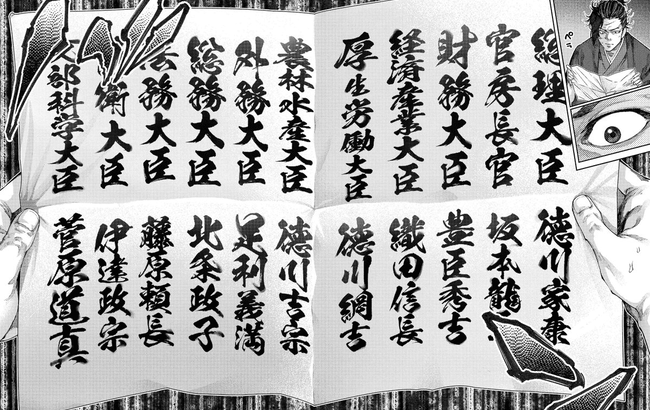 ペラ
総理大臣
徳川家康
官房長官
坂本龍
財務大臣
豊臣秀吉
経済産業大臣
織田信長
厚生労働大臣
徳川綱吉
農林水産大臣
徳川吉宗
外務大臣
足利義満
総務大臣
北条政子
法務大臣
藤原頼長
衛大臣
伊達政宗
文部科学大臣
菅原道真